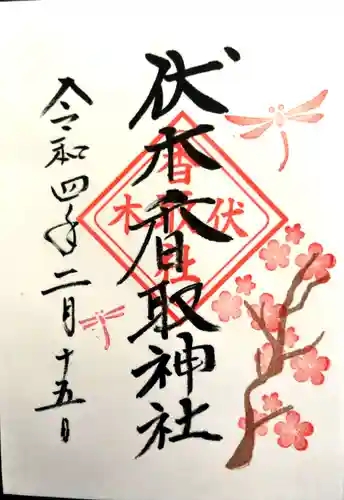 伏木香取神社
令和四年二月十五日
伏木
香取社